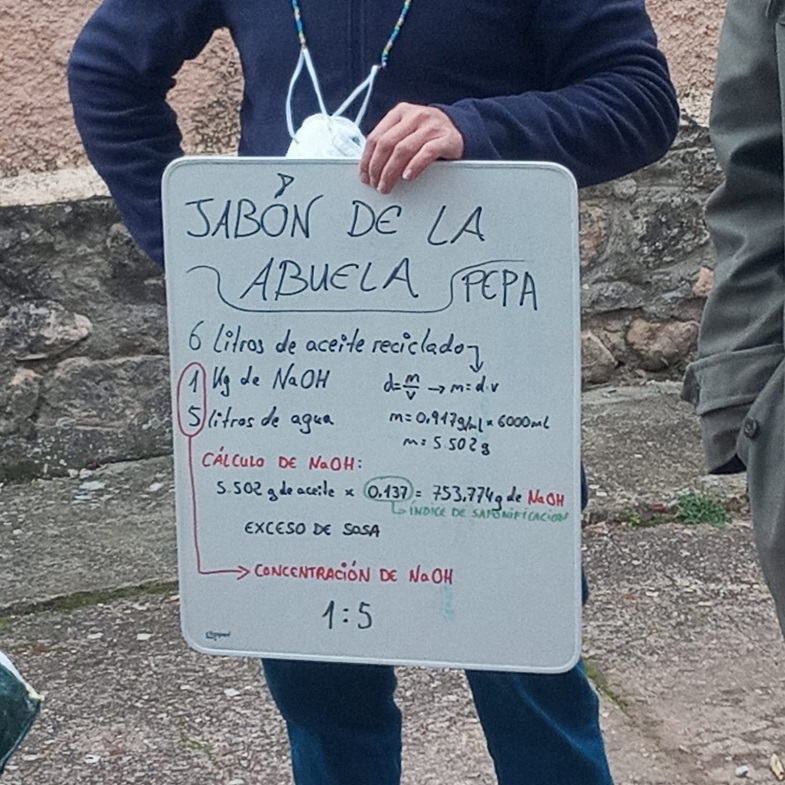 JABÓN DE LA
ABUELA PEPA
6 litros de aceite reciclado
1 Kg de NaOH
d=m/v → m=d·v
5 litros de agua
m=0,917g/ml × 6000ml
m=5.502g
CÁLCULO DE NaOH:
5.502 g de aceite × 0,137 = 753,774g de NaOH
ÍNDICE DE SAPONIFICACIÓN
EXCESO DE SOSA
CONCENTRACIÓN DE NaOH
1:5